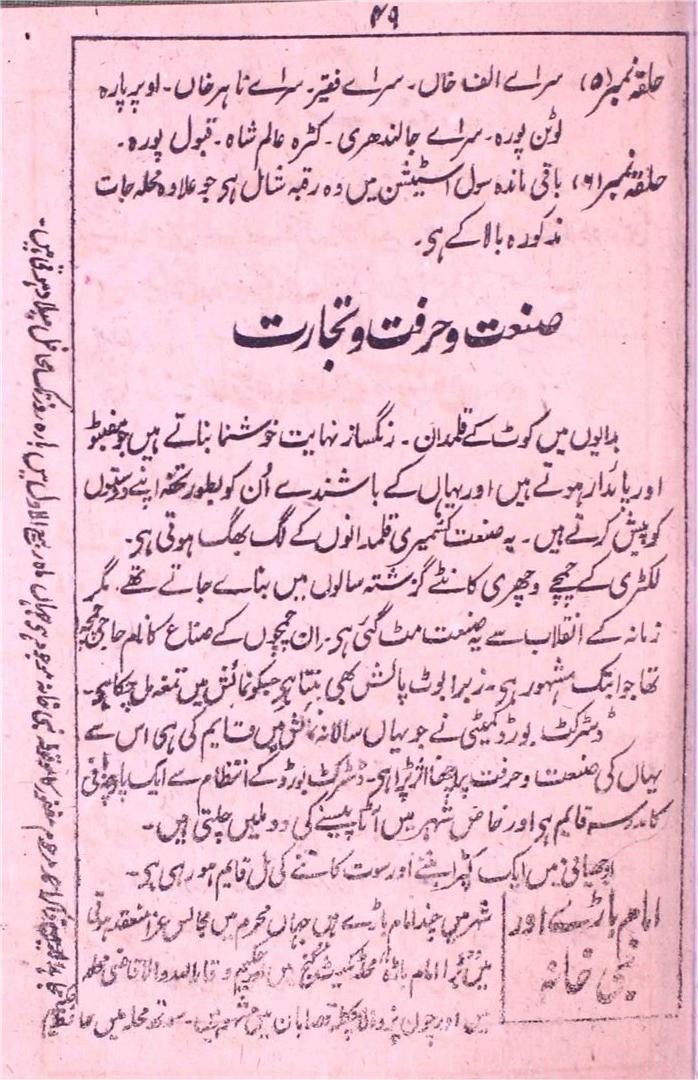 ۴۹
حلقہ نمبر (۵) سراے الف خاں۔ سراے فقیر۔ سراے ناہر خاں۔ اوپر پارہ
لوٹن پورہ۔ سراے جالندھری۔ کٹرہ عالم شاہ۔ قبول پورہ۔
حلقہ نمبر (۶) باقی ماندہ سول اسٹیشن میں وہ رقبہ شامل ہی جو علاوہ محلہ جات
مذکورہ بالا کے ہی۔
صنعت و حرفت و تجارت
بدایوں میں کوٹ کے قلمدان۔ رنگساز نہایت خوشنما بناتے ہیں جو مضبوط
اور پائدار ہوتے ہیں اور یہاں کے باشندے اُن کو بطور تحفہ اپنے دوستوں
کو پیش کرتے ہیں۔ یہ صنعت کشمیری قلمدانوں کے لگ بھگ ہوتی ہی۔
لکڑی کے چمچے و چھری کانٹے گزشتہ سالوں میں بناے جاتے تھے۔ مگر
زمانہ کے انقلاب سے یہ صنعت مٹ گئی ہی۔ ان چمچوں کے صناع کا نام حاجی چمچہ
تھا جو ابتک مشہور ہی۔ زبرا بوٹ پالش بھی بنتا ہی جسکو نمائش میں تمغہ مل چکا ہی۔
ڈسٹرکٹ بورڈ کمیٹی نے جو یہاں سالانہ نمائش میں قایم کی ہی اس سے
یہاں کی صنعت و حرفت پر اچھا اثر پڑا ہی۔ ڈسٹرکٹ بورڈ کے انتظام سے ایک پارچہ بافی
کا مدرسہ قایم ہی اور خاص شہر میں آٹا پیسنے کی دو ملیں چلتی ہیں۔
اوجھیانی میں ایک کپڑا بننے اور سوت کاتنے کی مل قایم ہو رہی ہی۔
امام باڑے اور
نبی خانہ
شہر میں چند امام باڑے ہیں جہاں محرم میں مجالس عزا منعقد ہوتی
ہیں بڑا امام باڑہ محلہ میں قاضی محلہ
میں اور قصابان میں مشہور ہیں۔ سوتھ محلہ میں
نبی خانہ موجود ہی جہاں ماہ ربیع الاول میں بارہ روز تک محافل میلاد ہوتی ہیں۔